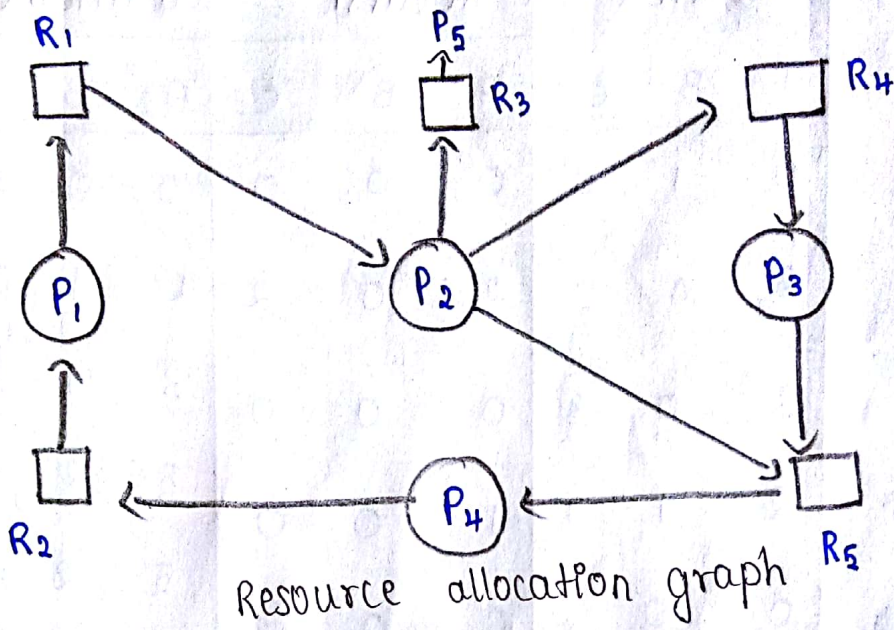 R1 P5
R3 R4
P1 P2 P3
R2 P4 R5
Resource allocation graph